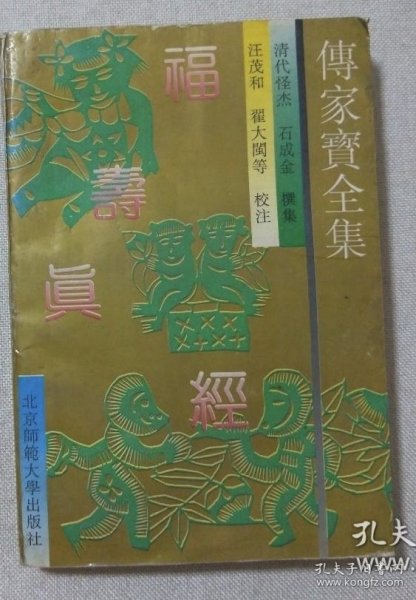 傳家寳全集
清代怪杰 石成金 撰集
汪茂和 翟大閩等 校注
福壽眞經
北京師範大學出版社
孔夫
www.
孔夫子旧书网
www.kongfz.com